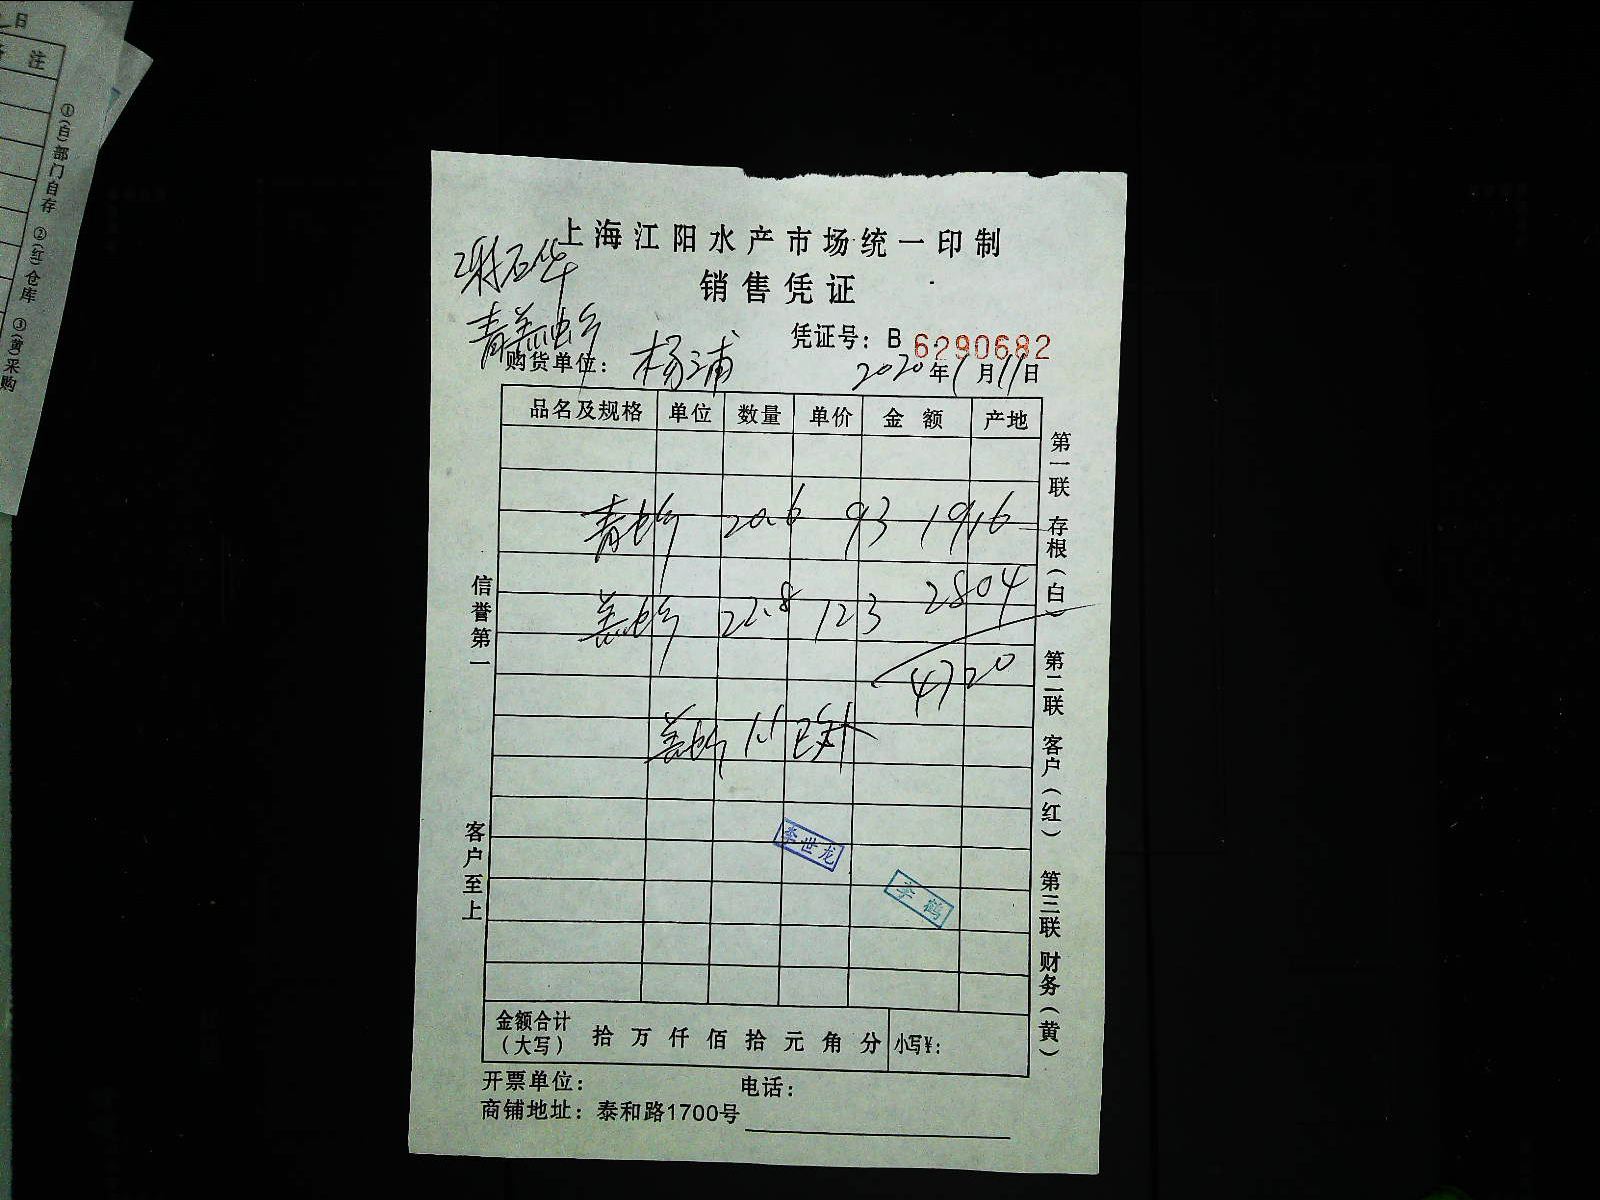 日
注
①(白)部门自存 ②(红)仓库 ③(黄)采购
上海江阳水产市场统一印制
销售凭证
凭证号：B 6290682
购货单位：杨浦
2020年1月11日
品名及规格 单位 数量 单价 金额 产地
青 20.6 93 1916
22.8 123 2804
4720
1.1
李世龙
李鹤
信誉第一
客户至上
第一联 存根(白) 第二联 客户(红) 第三联 财务(黄)
金额合计(大写) 拾 万 仟 佰 拾 元 角 分 小写¥：
开票单位： 电话：
商铺地址：泰和路1700号